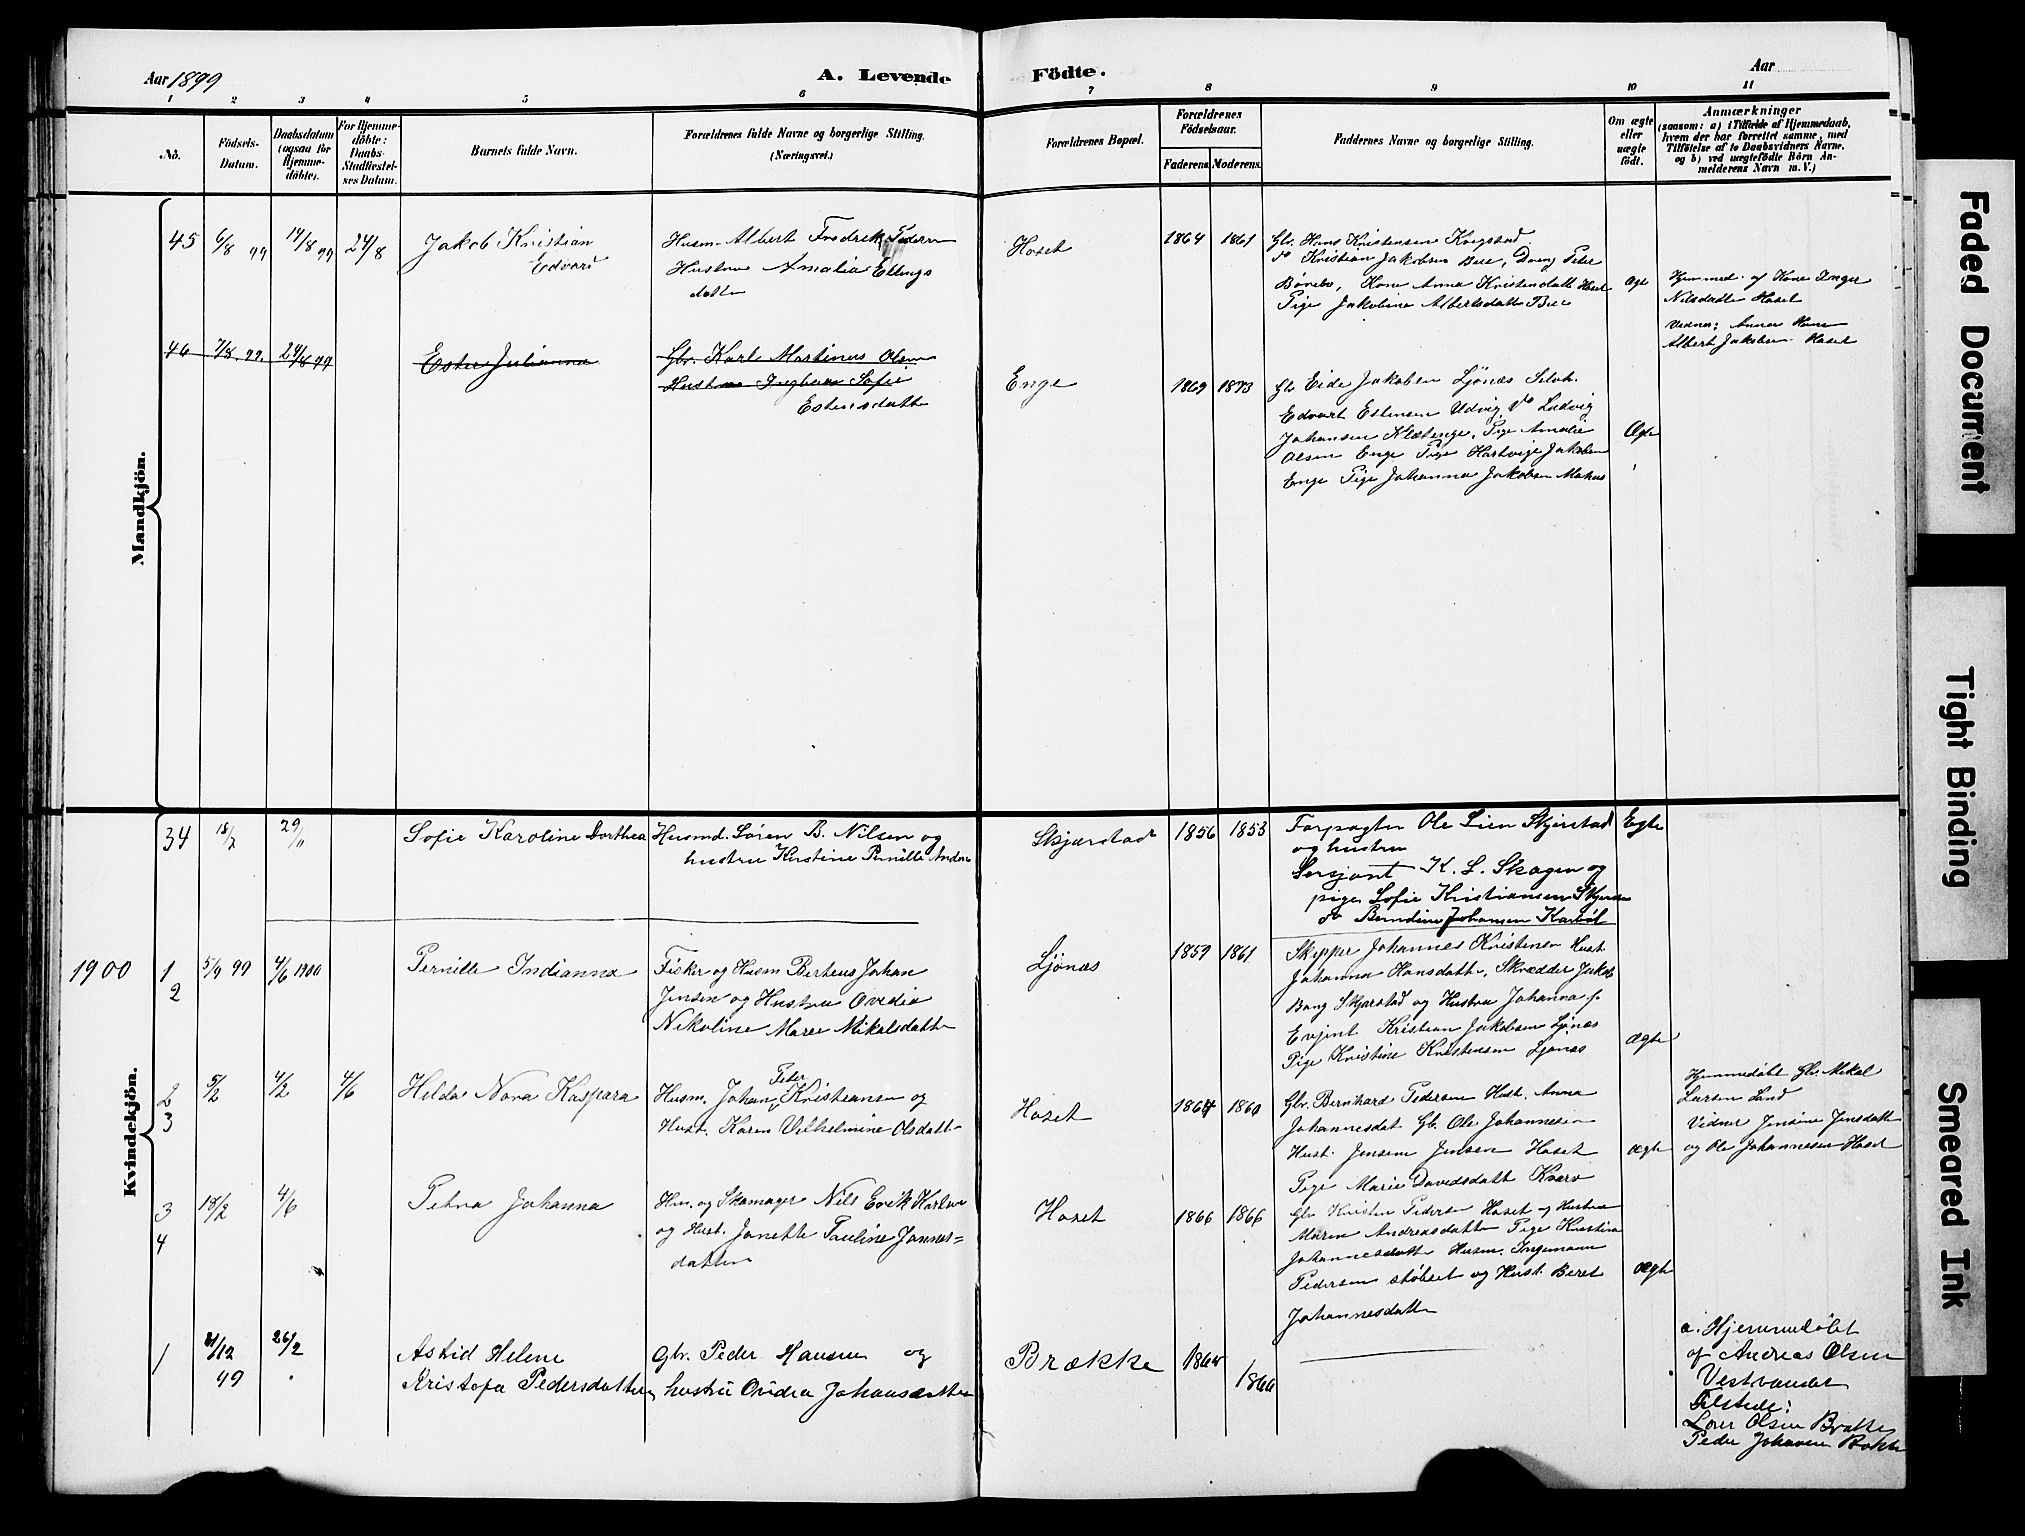 Aar 1899
A. Levende Födte.
Aar
1 2 3 4 5 6 7 8 9 10 11
No.
Födsels-
Datum.
Daabsdatum
(ogsaa for
Hjemme-
döbte).
For Hjemme-
döbte:
Daabs-
Stadfæstel-
ses Datum.
Barnets fulde Navn.
Forældrenes fulde Navne og borgerlige Stilling.
(Næringsvei.)
Forældrenes Bopæl.
Forældrenes
Födselsaar.
Faderens. Moderens.
Faddernes Navne og borgerlige Stilling.
Om ægte
eller
uægte
födt.
Anmærkninger
(saasom: a) i Tilfælde af Hjemmedaab,
hvem der har forrettet samme, med
Tilföielse af to Daabsvidners Navne,
og b) ved uægtefödte Börn An-
melderens Navn m. V.)
Mandkjön.
45 6/8 99 14/8 99 24/8
Jakob Kristian
Edvard
Husm. Albert Fredrik Pedersen
Hustru Amalia Ellings
datter
Hoset
1864 1861
Gbr. Hans Kristensen
do Kristian Jakobsen Bee, Dreng Peter
Kone Anna Kristensdatt Hoset
Pige Jakobine Albertsdatt Bee
Ægte
Hjemmed. af Kone Inger
Nilsdatter Hoset
Vidner: Anna Hans
Albert Jakobsen Hoset
46 7/8 99. 24/8 99
Ester Julianna
Gbr. Karl Martinus Olsen
Hustru Ingbor Sofie
Estensdatter
Enge
1869 1873
Gbr Eide Jakobsen Ljønæs Selvh.
Edvart Estensen Udvig do Ludvig
Johansen Kletenge, Pige Amalie
Olsen Enge Pige Hartvige Jakobsen
Enge Pige Johanna Jakobsen
Ægte
Kvindekjön.
34 18/7 29/11
Sofie Karoline Dorthea
Husmd. Søren B. Nilsen og
hustru Kirstine Pernille Anders
Skjærstad
1856 1853
Forpagter Ole Lien Skjerstad
og hustru
Sersjant K. L. Skagen og
pige Sofie Kristiansen Skjerstad
do Berndine Johansen
Egte
1900
1 2 5/9 99 4/6 1900
Pernille Indianna
Fisker og Husm Berteus Johan
Jensen og Hustru Ovedia
Nikoline Maree Mikalsdatte
Ljönæs
1859 1861
Skipper Johannes Kristensen Hust.
Johanna Hansdatt, Skrædder Jakob
Bang Skjærstad og Hustru Johanna f.
Evjent Kristian Jakobsen Ljønæs
Pige Kristine Kristensen Ljønæs
Ægte
2 3 5/2 4/2 4/6
Helda Nora Kaspara
Peter
Husm. Johan Kristiansen og
Hust. Karen Vilhelmine Olsdatt
Hoset
1864 1860
Gbr. Bernhard Pedersen Hust. Anna
Johannesdat Gb. Ole Johannesen
Hust. Jensine Jensen Hoset
Pige Marie Davidsdatt Kvarv
Ægte
Hjemmedöbt Gbr. Mikal
Larsen Land
Vidner Jensine Jensdatt
og Ole Johannesen Hoset
3 4 18/2 4/6
Petra Johanna
Hus. og Skomager Nils Erik
og Hust. Janette Pauline Jannes=
datter
Hoset
1866 1866
Gbr Kristen Pedersen Hoset og Hustru
Maren Andreasdatter Pige Kristine
Johannesdatt Husm. Ingemann
Pedersen Støbset og Hust. Beret
Johannesdatte
Ægte
1 21/12 99 26/2
Astrid Helene
Kristofa Pedersdatter
Gbr. Peder Hansen og
hustru Ovidia Johansdatter
Brække
1864 1866
a. Hjemmedöbt
af Andreas Olsen
Vestvandet
Tilstede:
Lorer Olsen Brække
Peder Johansen Bakke
Faded Document
Tight Binding
Smeared Ink